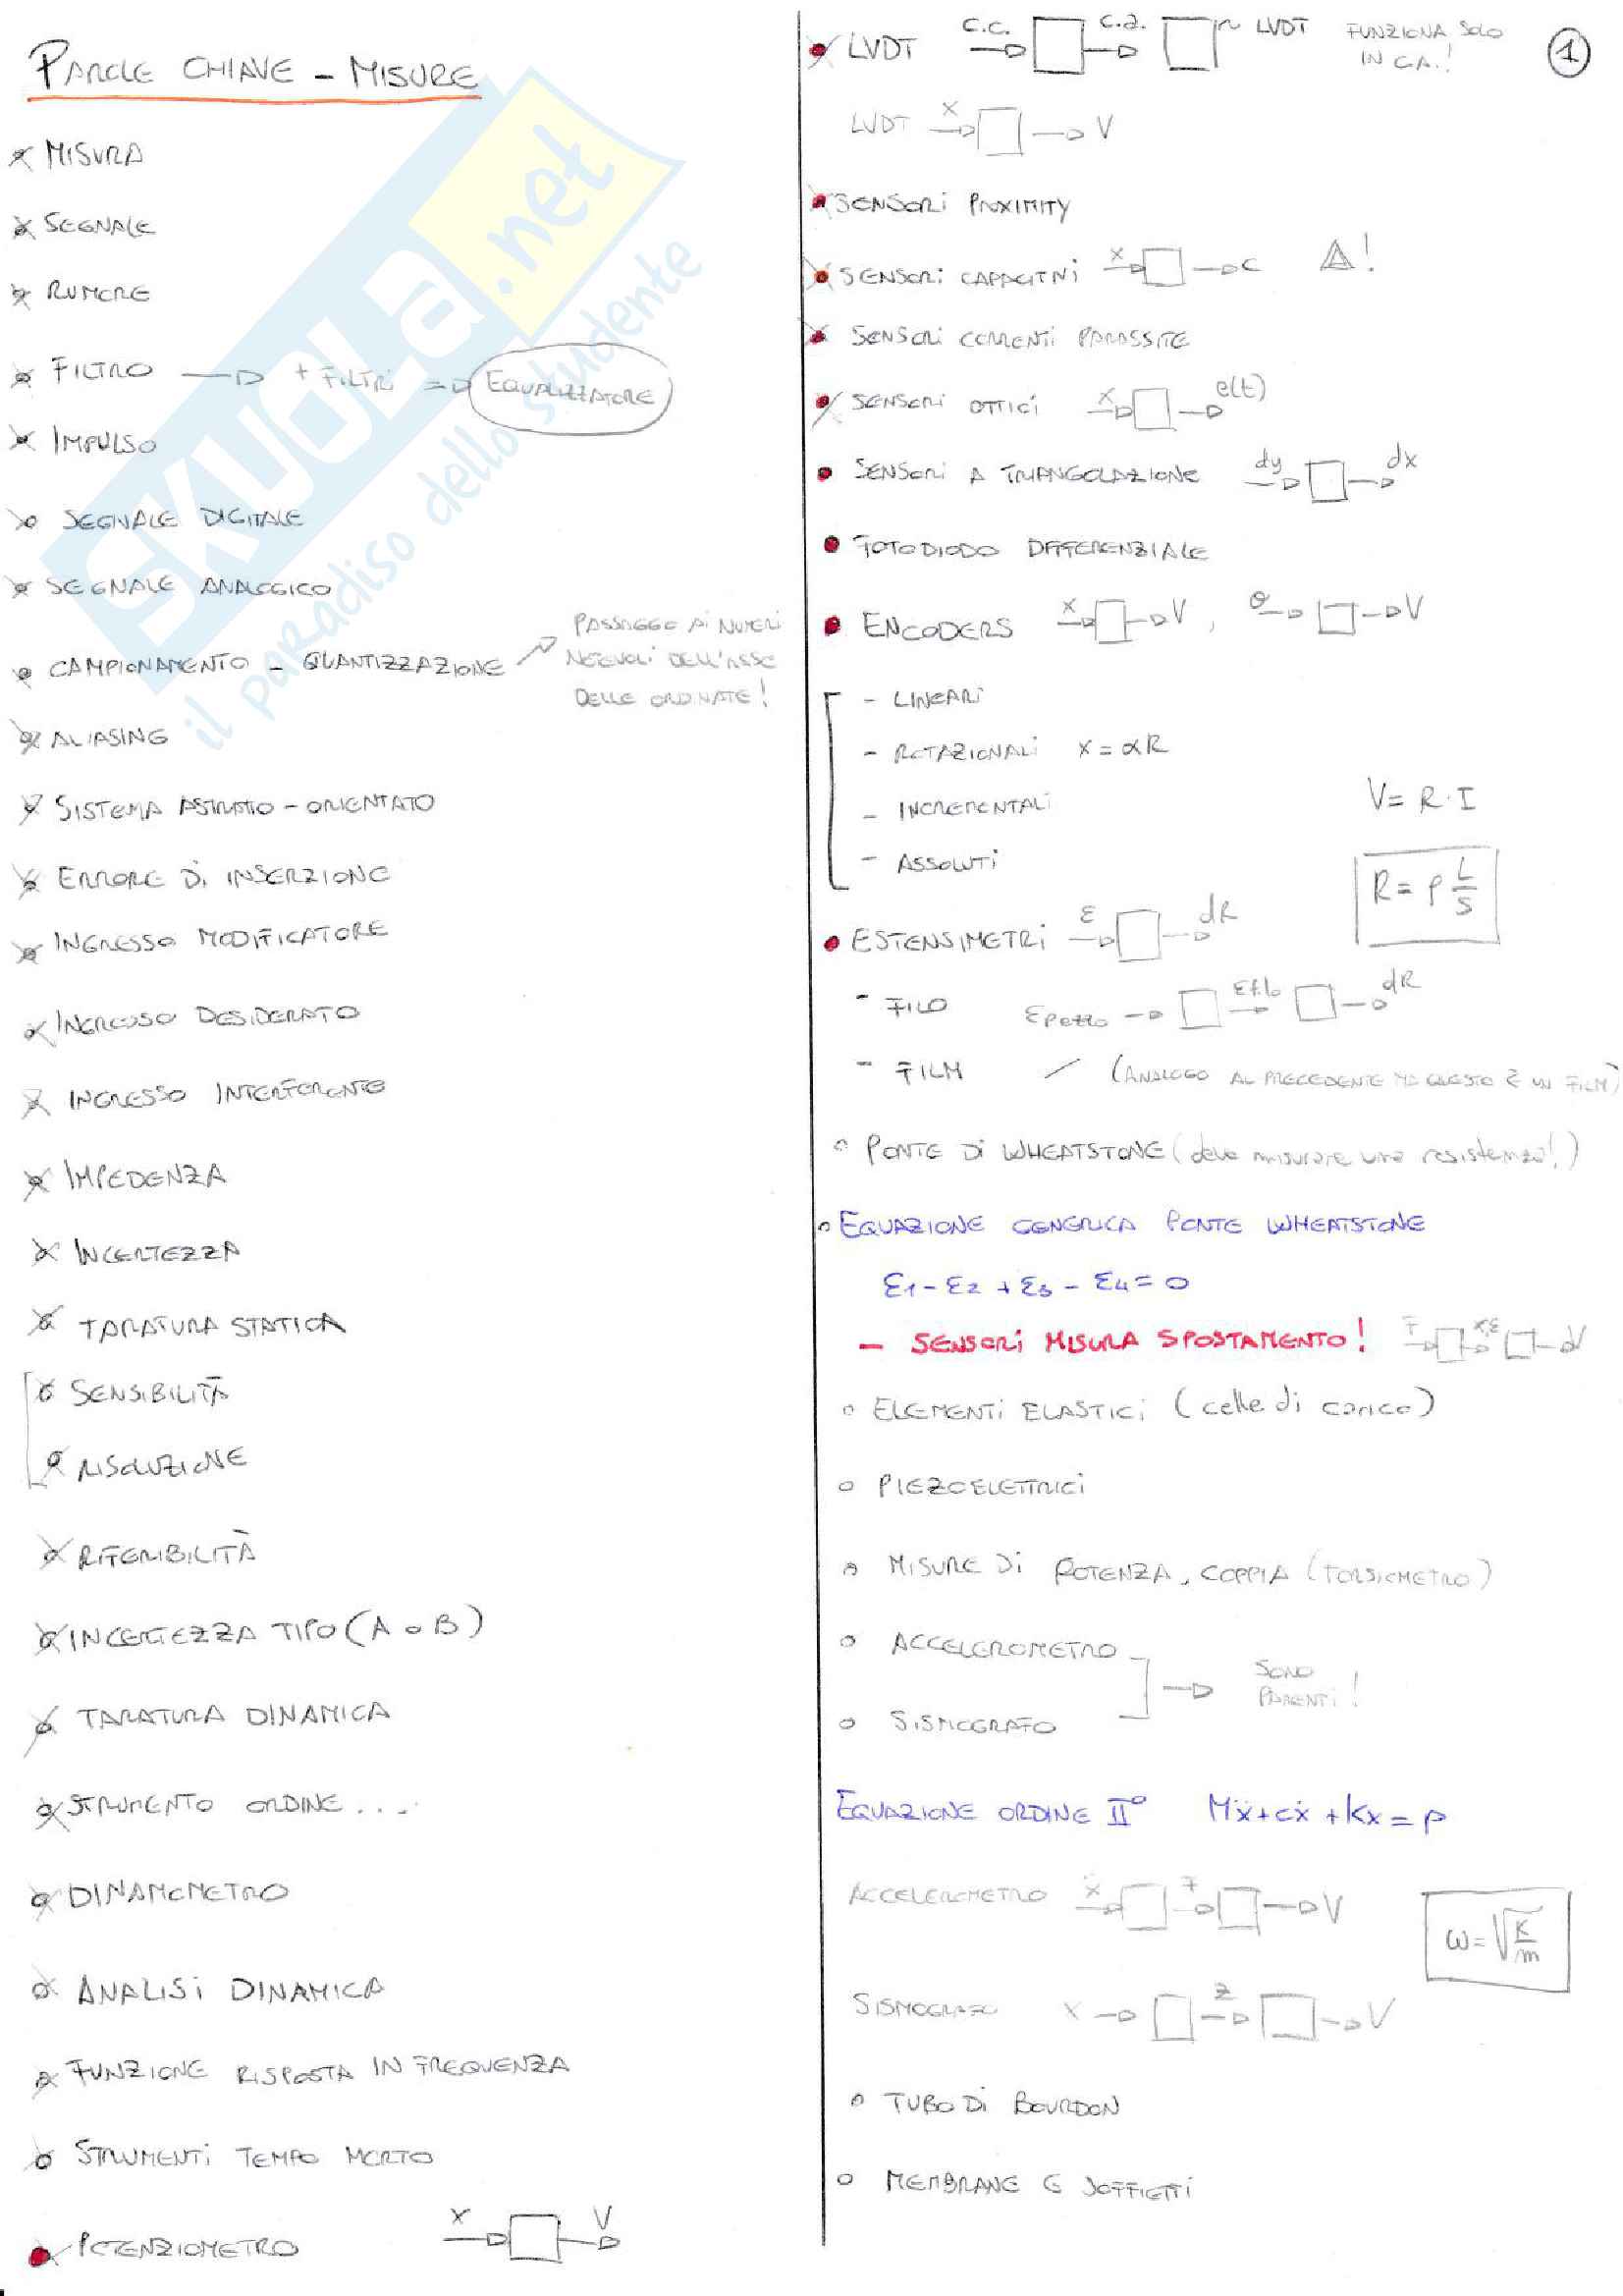 PAROLE CHIAVE - MISURE
MISURA
SEGNALE
RUMORE
FILTRO → + FILTRI => EQUALIZZATORE
IMPULSO
SEGNALE DIGITALE
SEGNALE ANALOGICO
CAMPIONAMENTO - QUANTIZZAZIONE
PASSAGGIO AI NUMERI
NOTEVOLI DELL'ASSE
DELLE ORDINATE!
ALIASING
SISTEMA ASTRATTO - ORIENTATO
ERRORE DI INSERZIONE
INGRESSO MODIFICATORE
INGRESSO DESIDERATO
INGRESSO INTERFERENTE
IMPEDENZA
INCERTEZZA
TARATURA STATICA
SENSIBILITÀ
RISOLUZIONE
RIFERIBILITÀ
INCERTEZZA TIPO (A o B)
TARATURA DINAMICA
STRUMENTO ORDINE ....
DINAMOMETRO
ANALISI DINAMICA
FUNZIONE RISPOSTA IN FREQUENZA
STRUMENTI TEMPO MORTO
POTENZIOMETRO x V
LVDT c.c. c.a. LVDT FUNZIONA SOLO
IN C.A.!
1
LVDT x V
SENSORI PROXIMITY
SENSORI CAPACITIVI x C !
SENSORI CORRENTI PARASSITE
SENSORI OTTICI x e(t)
SENSORI A TRIANGOLAZIONE dy dx
FOTODIODO DIFFERENZIALE
ENCODERS x V , θ V
- LINEARI
- ROTAZIONALI x = αR
- INCREMENTALI
- ASSOLUTI
V = R · I
R = ρ L/S
ESTENSIMETRI ε dR
- FILO εpezzo εfilo dR
- FILM / (ANALOGO AL PRECEDENTE MA QUESTO È UN FILM)
PONTE DI WHEATSTONE (deve misurare una resistenza!)
EQUAZIONE GENERICA PONTE WHEATSTONE
ε1 - ε2 + ε3 - ε4 = 0
- SENSORI MISURA SPOSTAMENTO! F x,ε V
ELEMENTI ELASTICI (celle di carico)
PIEZOELETTRICI
MISURE DI POTENZA, COPPIA (TORSIOMETRO)
ACCELEROMETRO
SISMOGRAFO
SONO
PARENTI!
EQUAZIONE ORDINE II° Mẍ + cẋ + Kx = p
ACCELEROMETRO ẍ F V
ω = √K/m
SISMOGRAFO x z V
TUBO DI BOURDON
MEMBRANE E SOFFIETTI
SKUOLA.net
il paradiso dello studente